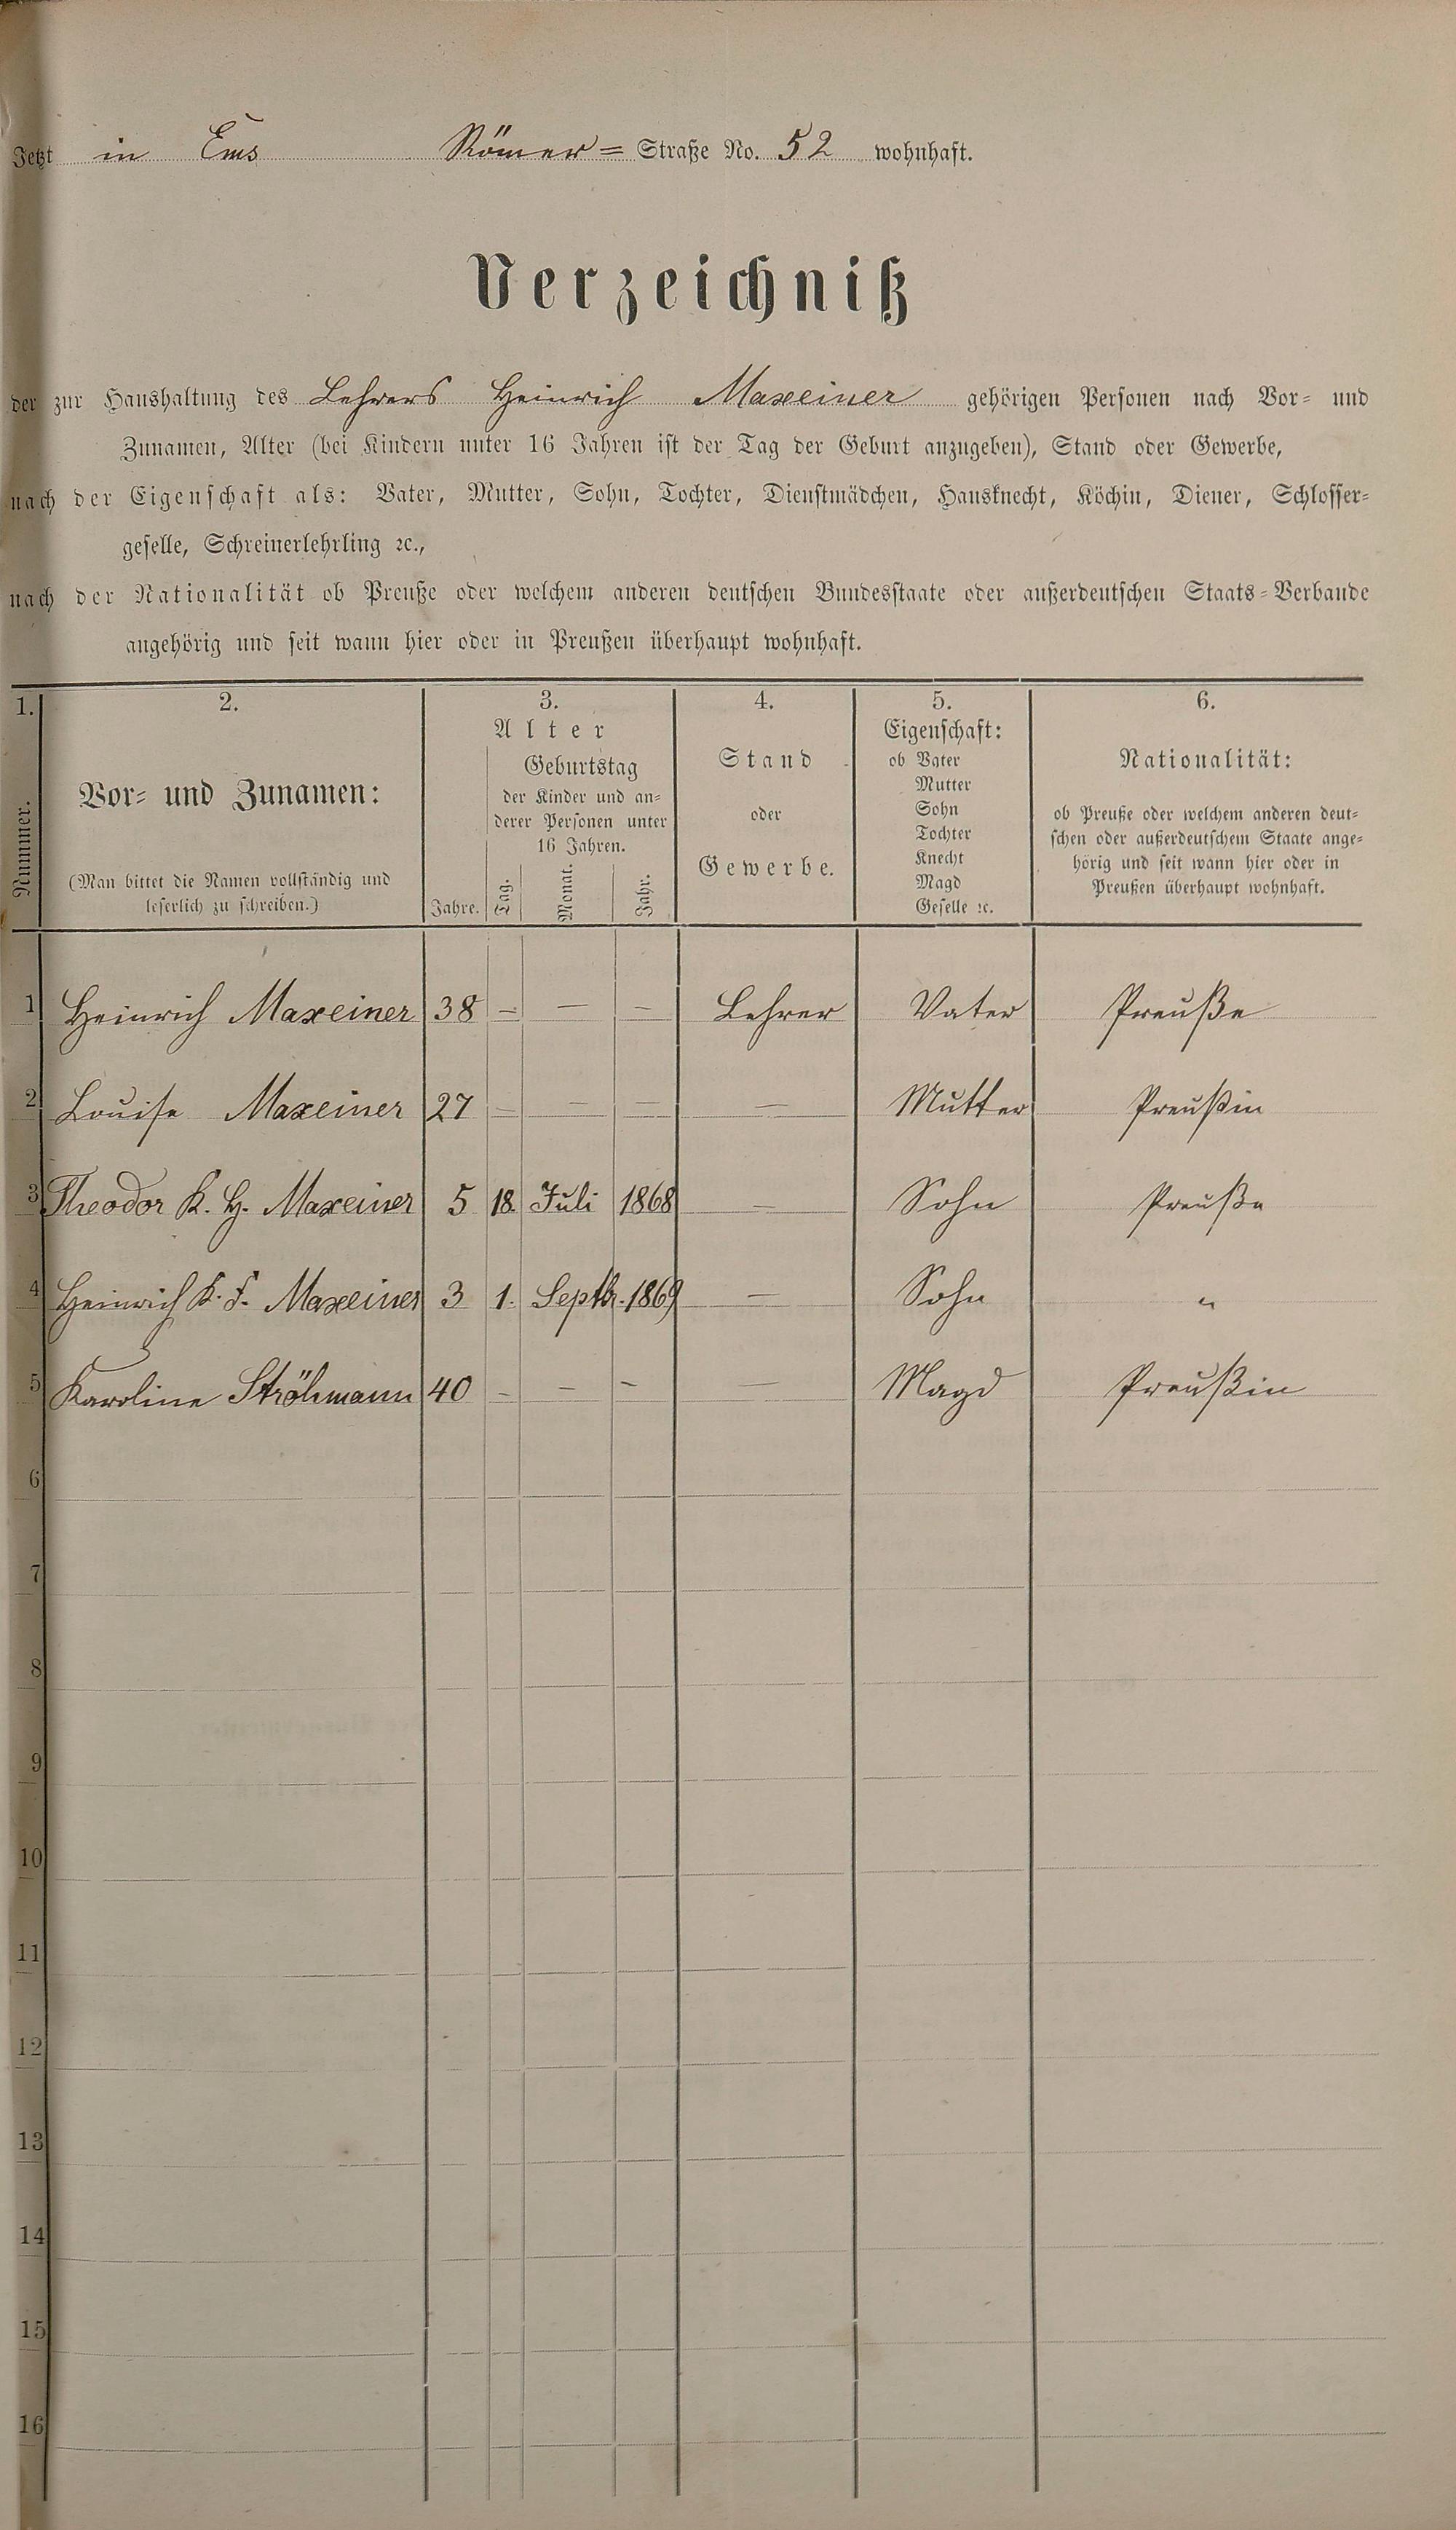 Jetzt in Ems Römer= Straße No. 52 wohnhaft.
Verzeichniß
der zur Haushaltung des Lehrers Heinrich Maxeiner gehörigen Personen nach Vor= und
Zunamen, Alter (bei Kindern unter 16 Jahren ist der Tag der Geburt anzugeben), Stand oder Gewerbe,
nach der Eigenschaft als: Vater, Mutter, Sohn, Tochter, Dienstmädchen, Hausknecht, Köchin, Diener, Schlosser=
geselle, Schreinerlehrling ꝛc.,
nach der Nationalität ob Preuße oder welchem anderen deutschen Bundesstaate oder außerdeutschen Staats=Verbande
angehörig und seit wann hier oder in Preußen überhaupt wohnhaft.
1.
Nummer.
2.
Vor= und Zunamen:
(Man bittet die Namen vollständig und
leserlich zu schreiben.)
3.
Alter
Geburtstag
der Kinder und an=
derer Personen unter
16 Jahren.
Jahre. Tag. Monat. Jahr.
4.
Stand
oder
Gewerbe.
5.
Eigenschaft:
ob Vater
Mutter
Sohn
Tochter
Knecht
Magd
Geselle ꝛc.
6.
Nationalität:
ob Preuße oder welchem anderen deut=
schen oder außerdeutschem Staate ange=
hörig und seit wann hier oder in
Preußen überhaupt wohnhaft.
1 Heinrich Maxeiner 38 – – – Lehrer Vater Preuße
2 Louise Maxeiner 27 – – – – Mutter Preußin
3 Theodor K. H. Maxeiner 5 18. Juli 1868 – Sohn Preuße
4 Heinrich K. F. Maxeiner 3 1. Septbr. 1869 – Sohn "
5 Karoline Ströhmann 40 – – – – Magd Preußin
6
7
8
9
10
11
12
13
14
15
16